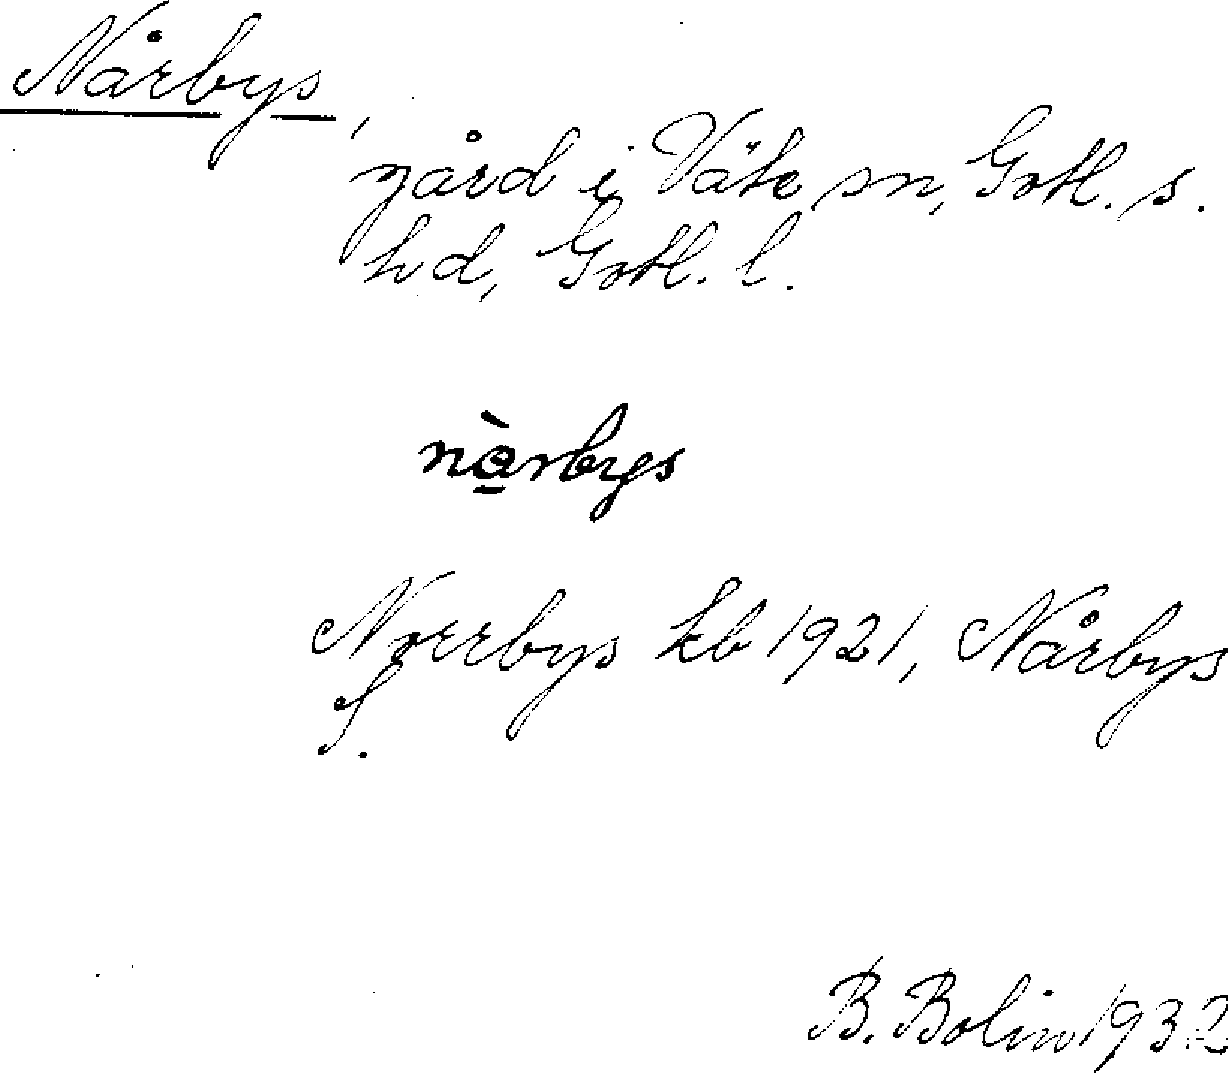 Nårbys,
gård i Väte sn, Gotl. s.
hd, Gotl. l.
nòrbys
Norrbys kb 1921, Nårbys
S.
B. Bolin 1932